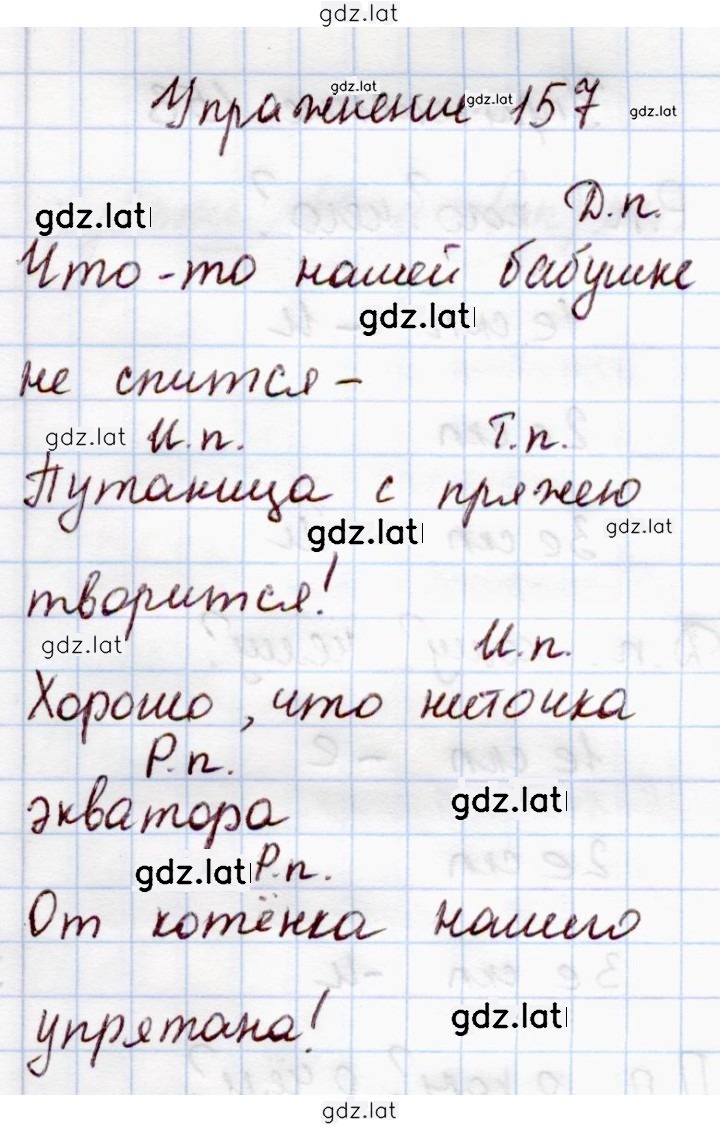 gdz.lat
gdz.lat
Упражнение 157
gdz.lat
gdz.lat
Д.п.
gdz.lat
Что-то нашей бабушке
gdz.lat
не спится –
gdz.lat
И.п. Т.п.
Путаница с пряжею
gdz.lat
gdz.lat
творится!
gdz.lat
И.п.
Хорошо, что ниточка
Р.п.
gdz.lat
экватора
gdz.lat
Р.п.
От котёнка нашего
gdz.lat
упрятана!
gdz.lat